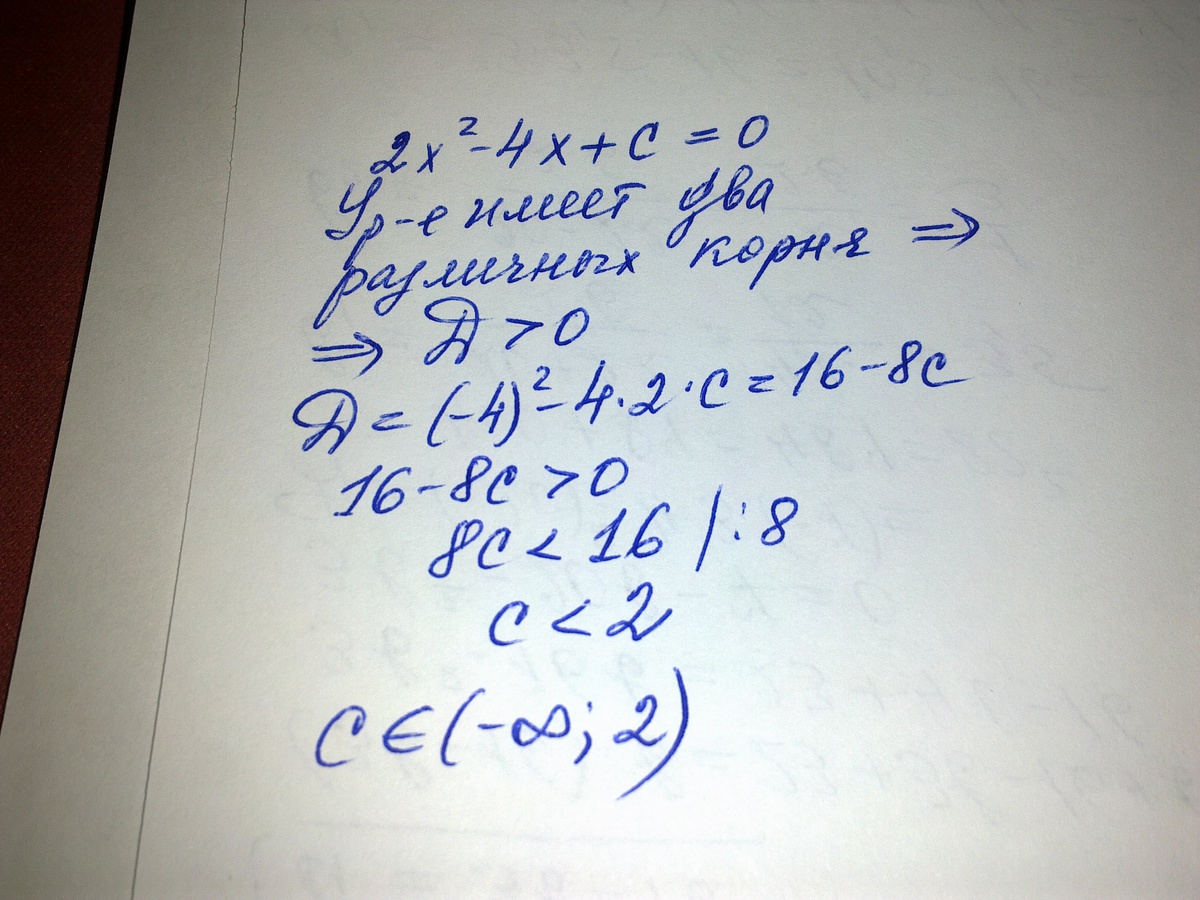 2x² - 4x + c = 0
Ур-е имеет два
различных корня ⇒
⇒ D > 0
D = (-4)² - 4 · 2 · c = 16 - 8c
16 - 8c > 0
8c < 16 | : 8
c < 2
c ∈ (-∞; 2)